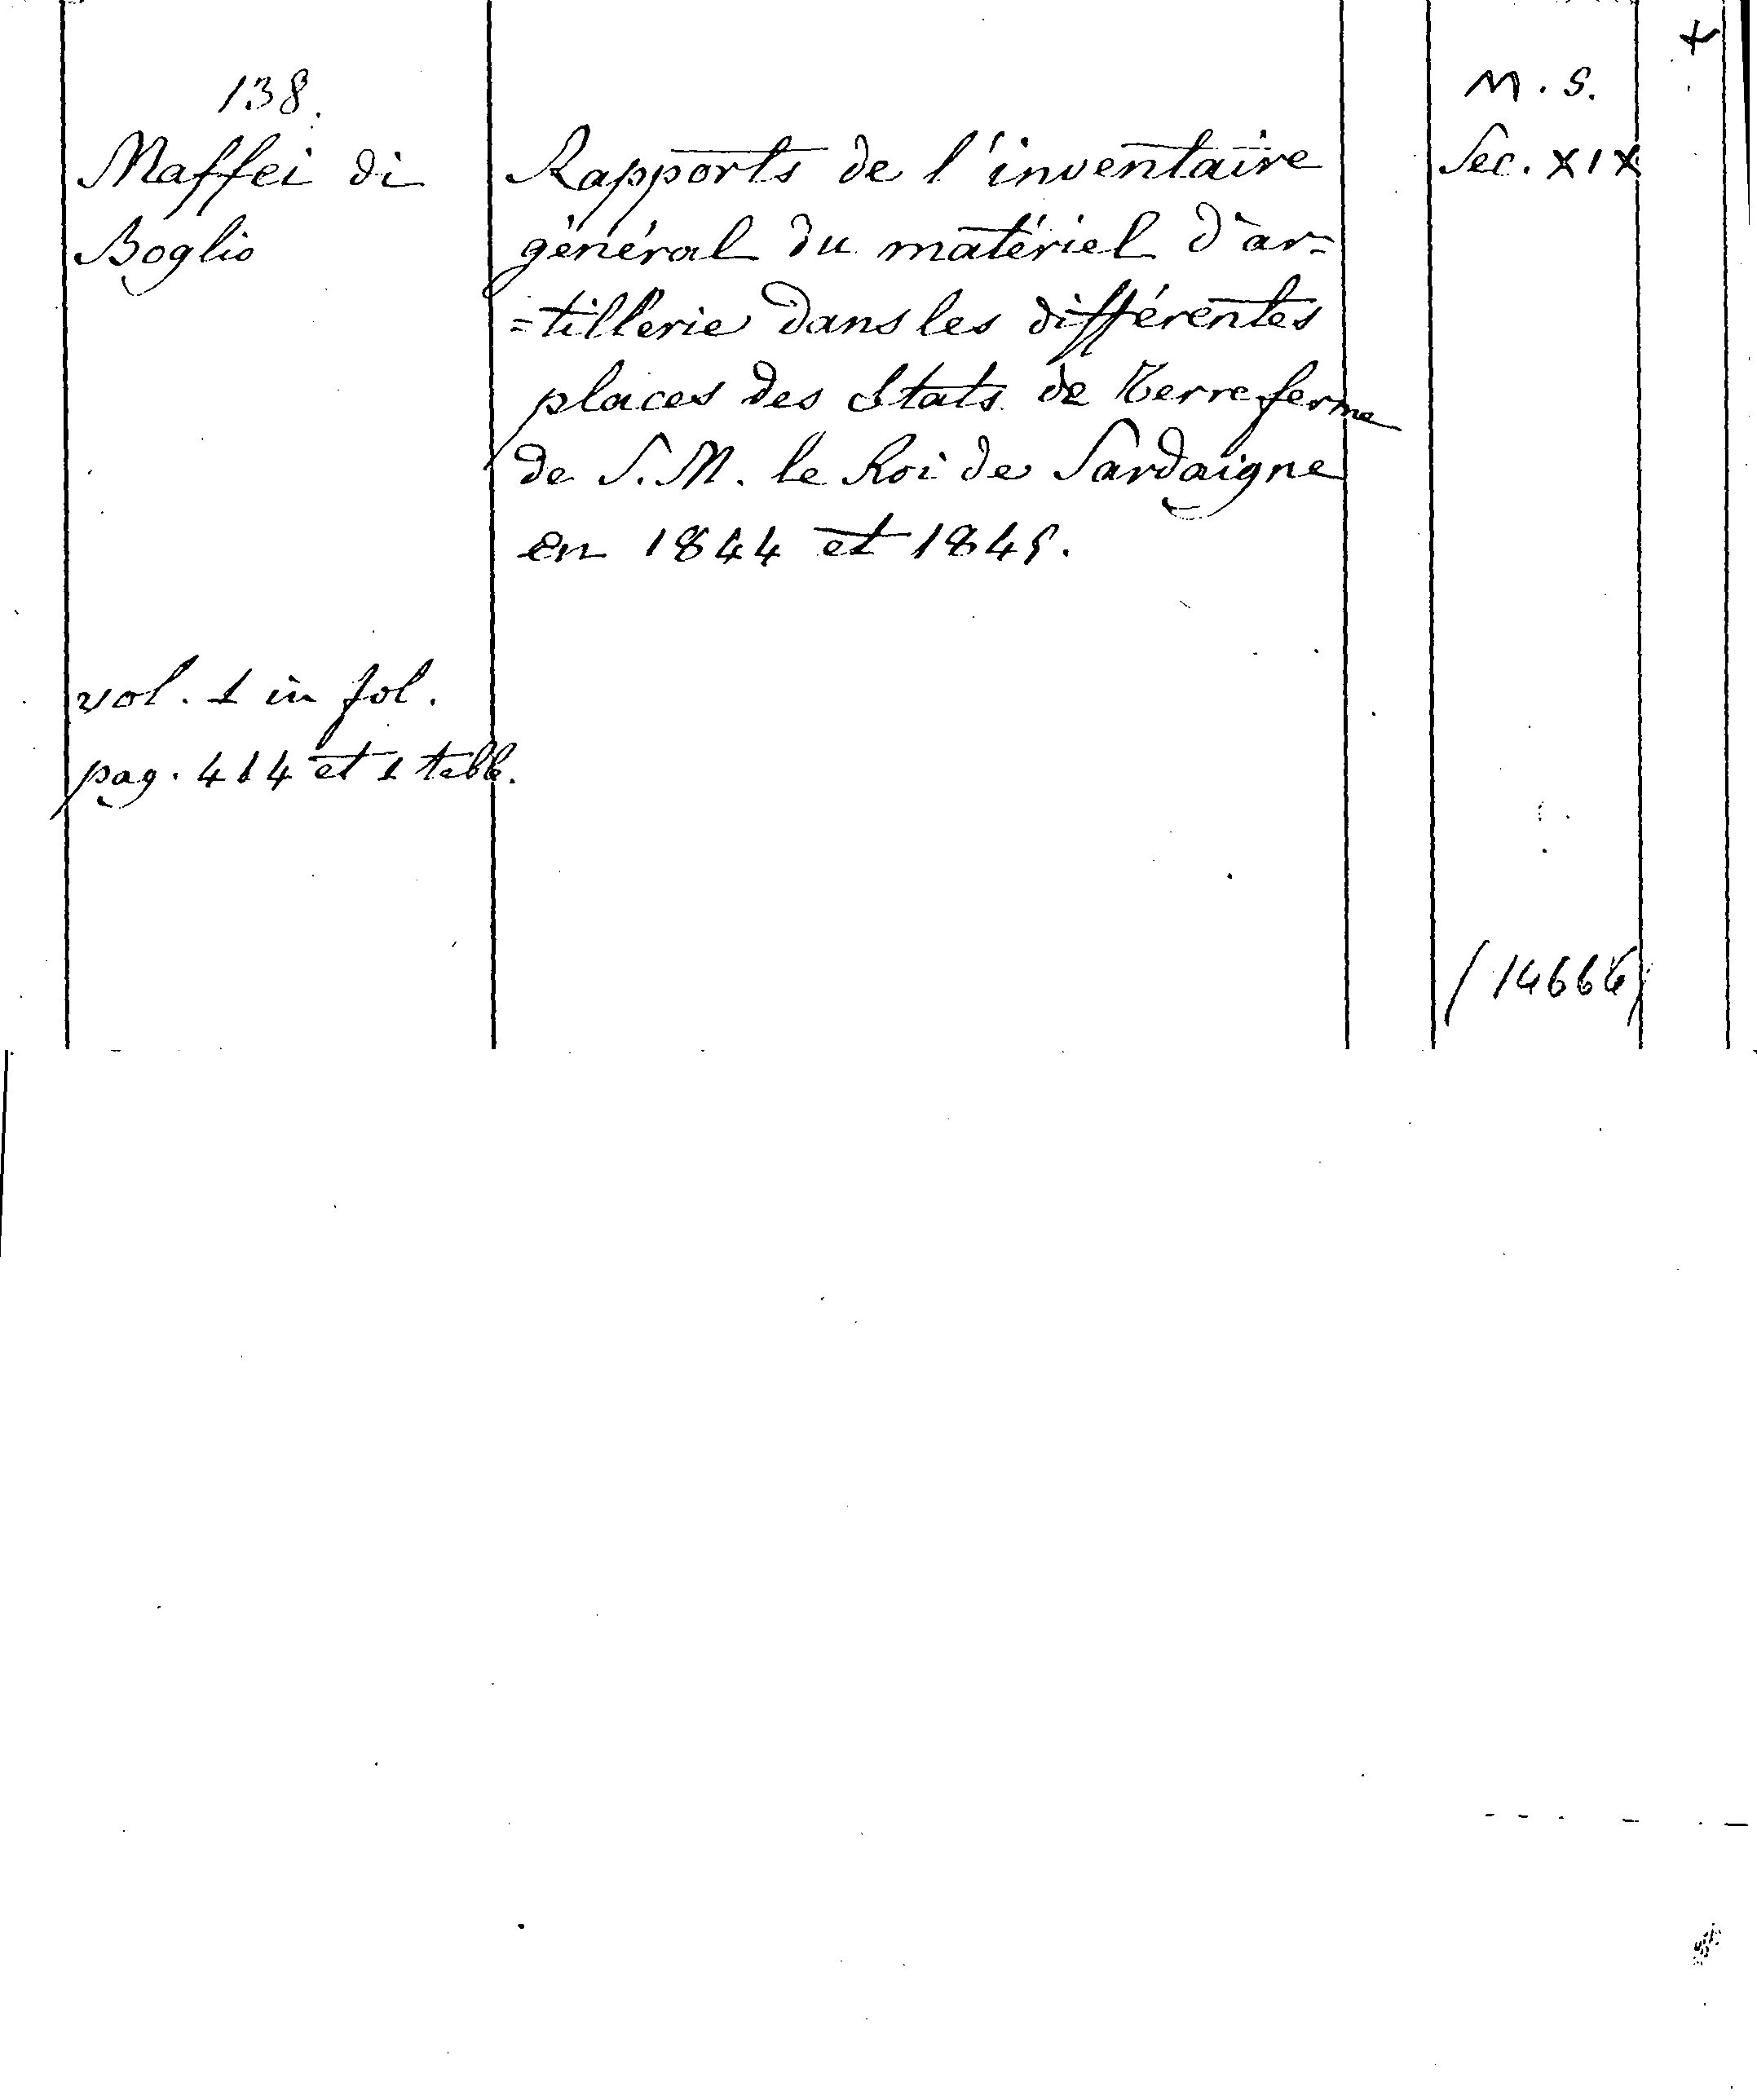 138.
Maffei di
Boglio
vol. 1 in fol.
pag. 414 et 1 tabb.
Rapports de l'inventaire
général du matériel d'ar=
=tillerie dans les différentes
places des Etats de Terreferme
de S. M. le Roi de Sardaigne
en 1844 et 1845.
M. S.
Sec. XIX
(14666)
+